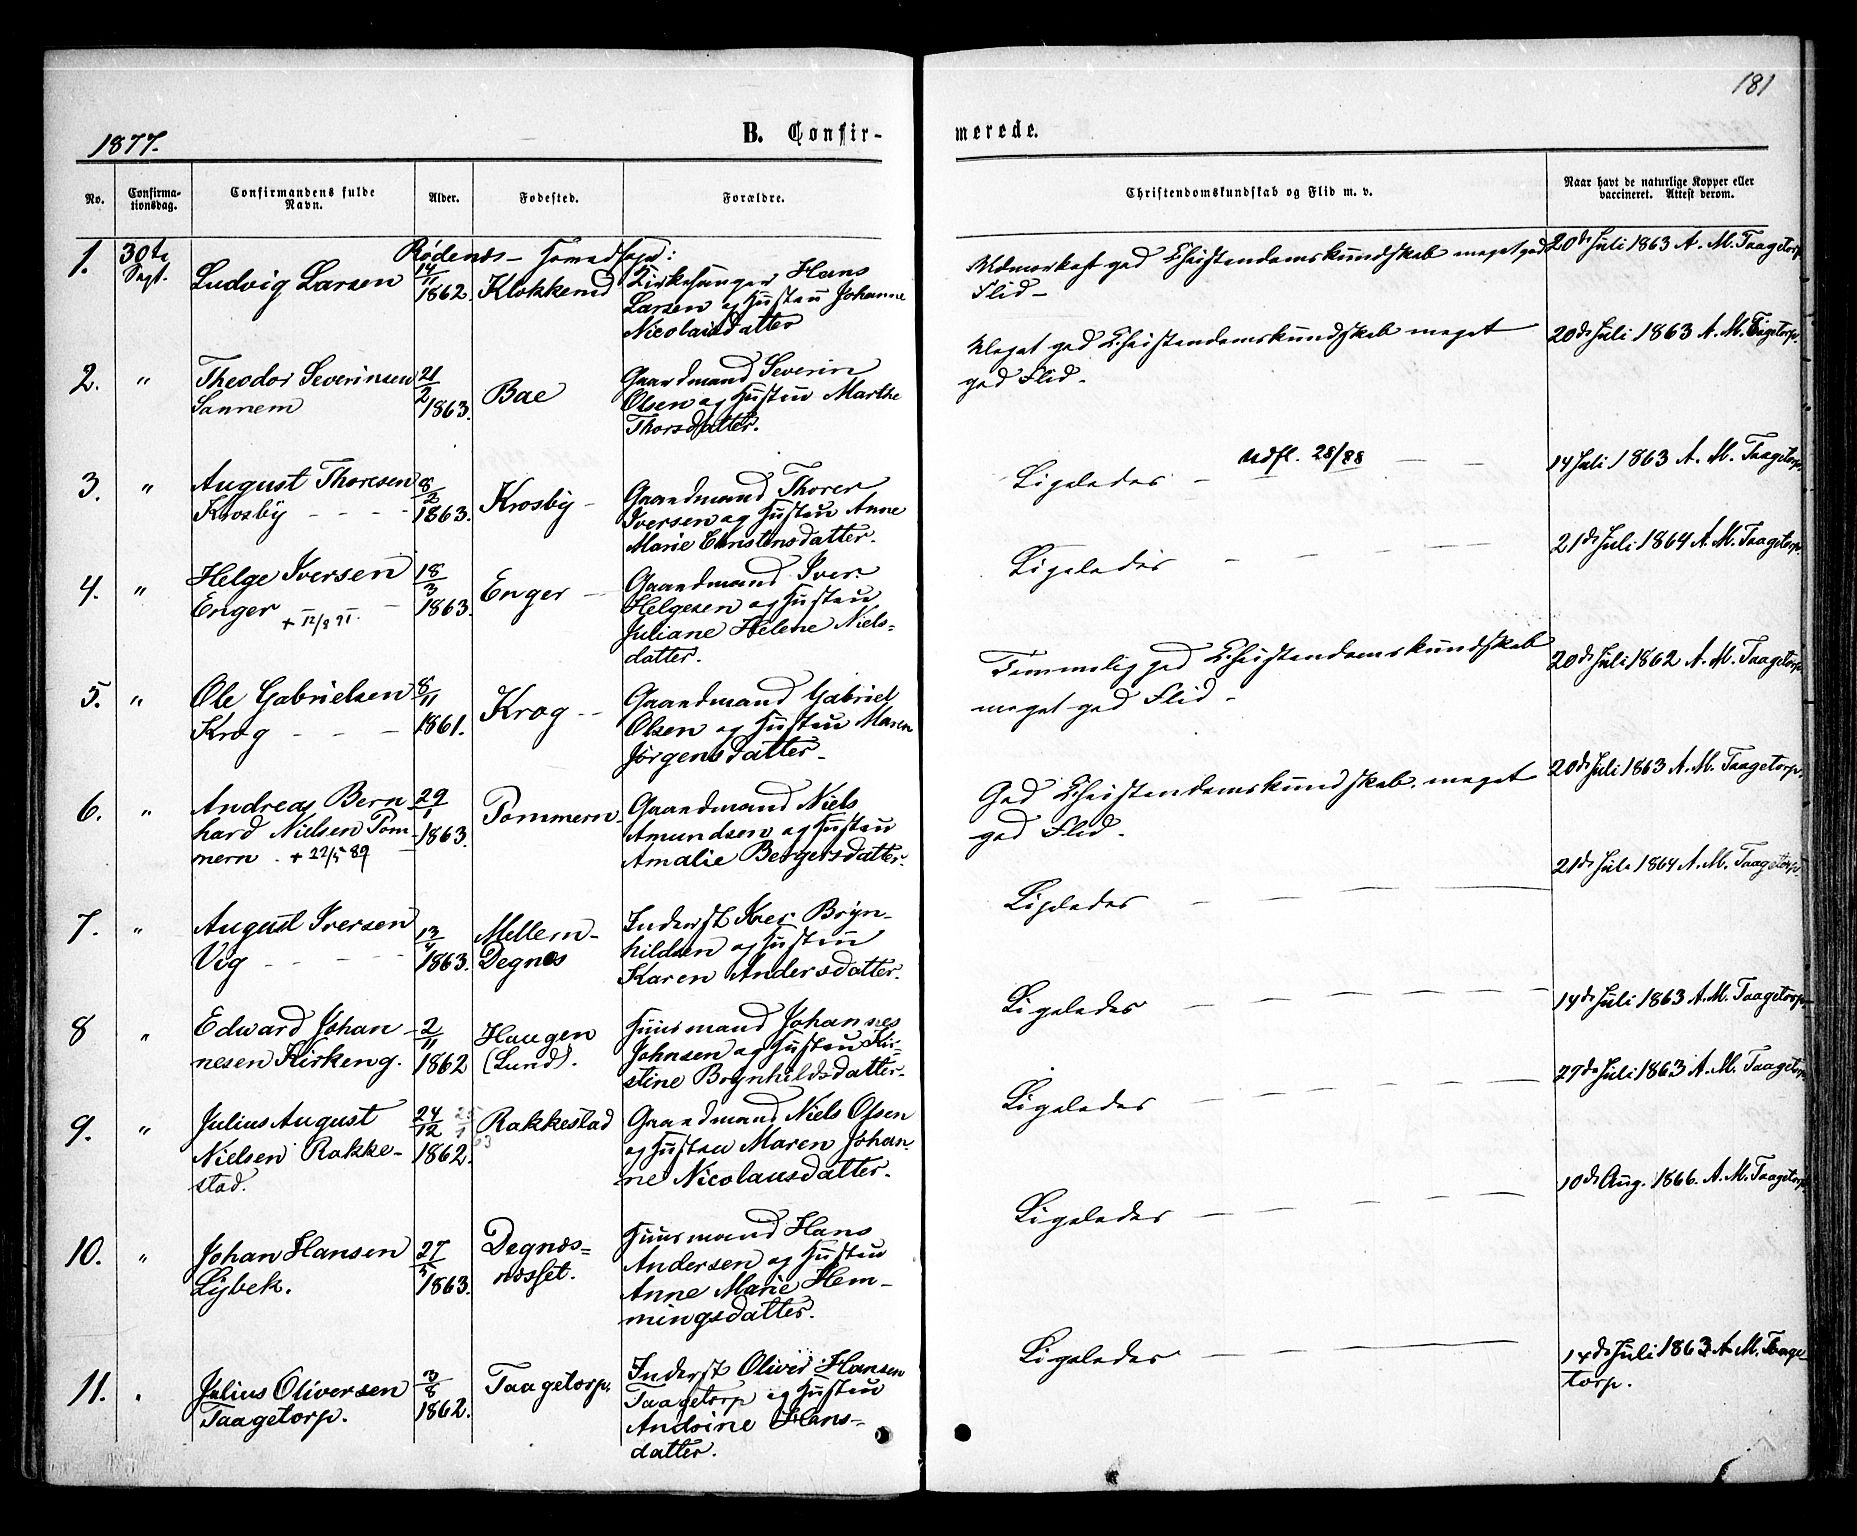 181
1877.
B. Confir-
merede.
No.
Confirma-
tionsdag.
Confirmandens fulde
Navn.
Alder.
Fødested.
Forældre.
Christendomskundskab og Flid m. v.
Naar havt de naturlige Kopper eller
vaccineret. Attest derom.
Rødenæs-Hovedsogn:
1. 30te
Sept.
Ludvig Larsen
14/11
1862.
Klokkerud
Kirkesanger Hans
Larsen og Hustru Johanne
Nicolaisdatter
Udmærket god Christendomskundskab meget god
Flid-
20de Juli 1863 A. M. Taagetorp
2. "
Theodor Severinsen
Sannem
21/2
1863.
Bae
Gaardmand Severin
Olsen og Hustru Marthe
Thorsdatter.
Meget god Christendomskundskab meget
god Flid-
20de Juli 1863 A. M. Tagetorp.
3. "
August Thoresen
Krosby - - - -
8/2
1863.
Krosby -
Gaardmand Thorer
Iversen og Hustru Anne
Marie Christensdatter.
Ligeledes - Udfl. 28/88 - -
14 Juli 1863 A. M. Taagetorp
4. "
Helge Iversen
Enger + 12/8 91. -
18/3
1863.
Enger -
Gaardmand Iver
Helgesen og Hustru
Juliane Helene Niels-
datter.
Ligeledes - - - - -
21de Juli 1864 A. M. Taagetorp
5. "
Ole Gabrielsen
Krog - - -
8/11
1861.
Krog --
Gaardmand Gabriel
Olsen og Hustru Maren
Jørgensdatter-
Temmelig god Christendomskundskab
meget god Flid -
20de Juli 1862 A. M. Taagetorp
6. "
Andreas Bern
hard Nielsen Pom
mern. + 22/5 89 -
29/1
1863.
Pommern-
Gaardmand Niels
Amundsen og Hustru
Amalie Bergersdatter.
God Christendomskundskab. meget
god Flid-
20de Juli 1863 A. M. Taagetorp.
7. "
August Iversen
Vig - - - -
1863.
Mellem-
Degnæs
Inderst Iver Bryn-
hildsen og Hustru
Karen Andersdatter.
Ligeledes - - - - -
21de Juli 1864 A. M. Taagetorp.
8 "
Edward Johan-
nesen Kirkeng.
2/11
1862
Haugen
(Lund).
Huusmand Johannes
Johnsen og Hustru Kir-
stine Brynhildsdatter.
Ligeledes - - - - - -
14de Juli 1863 A. M. Taagetorp-
9. "
Julius August
Nielsen Rakke-
stad.
24/12
1862.
Rakkestad
Gaardmand Niels Olsen
og Hustru Maren Johan-
ne Nicolausdatter.
Ligeledes - - - - - -
27de Juli 1863 A. M. Taagetorp
10. "
Johan Hansen
Lybek.
27/5
1863.
Degnæs-
næsset.
Huusmand Hans
Andersen og Hustru
Anne Marie Hem-
mingsdatter.
Ligeledes - - - - - -
10de Aug. 1866. A. M. Taagetorp
11. "
Julius Oliversen
Taagetorp.
3/8
1862.
Taagetorp.
Inderst Oliver Hansen
Taagetorp og Hustru
Andrine Hans-
datter.
Ligeledes - - - - -
14de Juli 1863 A. M. Taage-
torp.